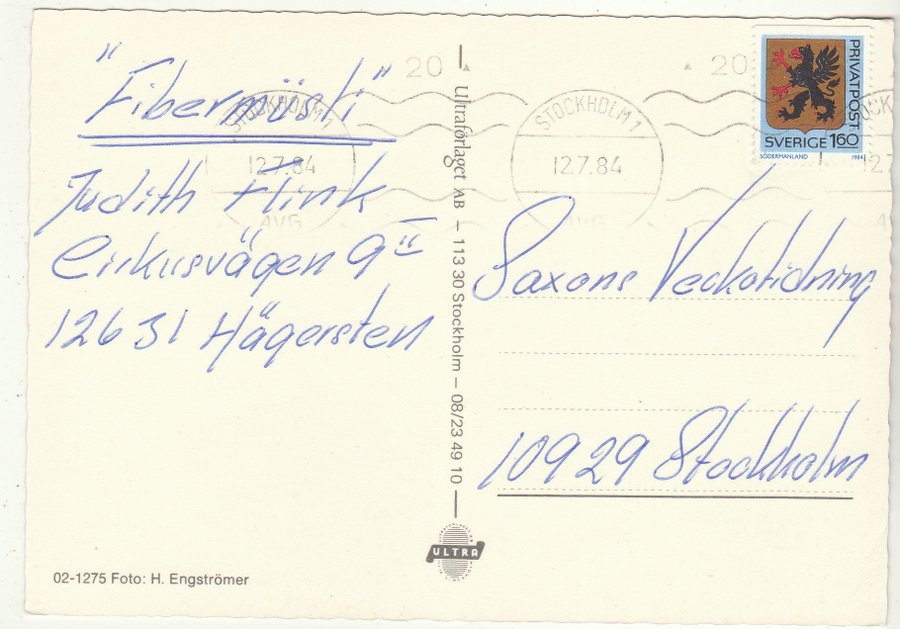 "Fibermüsli"
Judith Flink
Cirkusvägen 9 II
126 31 Hägersten
Ultraförlaget AB – 113 30 Stockholm – 08/23 49 10
ULTRA
02-1275 Foto: H. Engströmer
20
STOCKHOLM 1
12.7.84
AVG
20
STOCKHOLM 1
12.7.84
AVG
PRIVATPOST
SVERIGE 160
SÖDERMANLAND 1984
Saxons Veckotidning
109 29 Stockholm